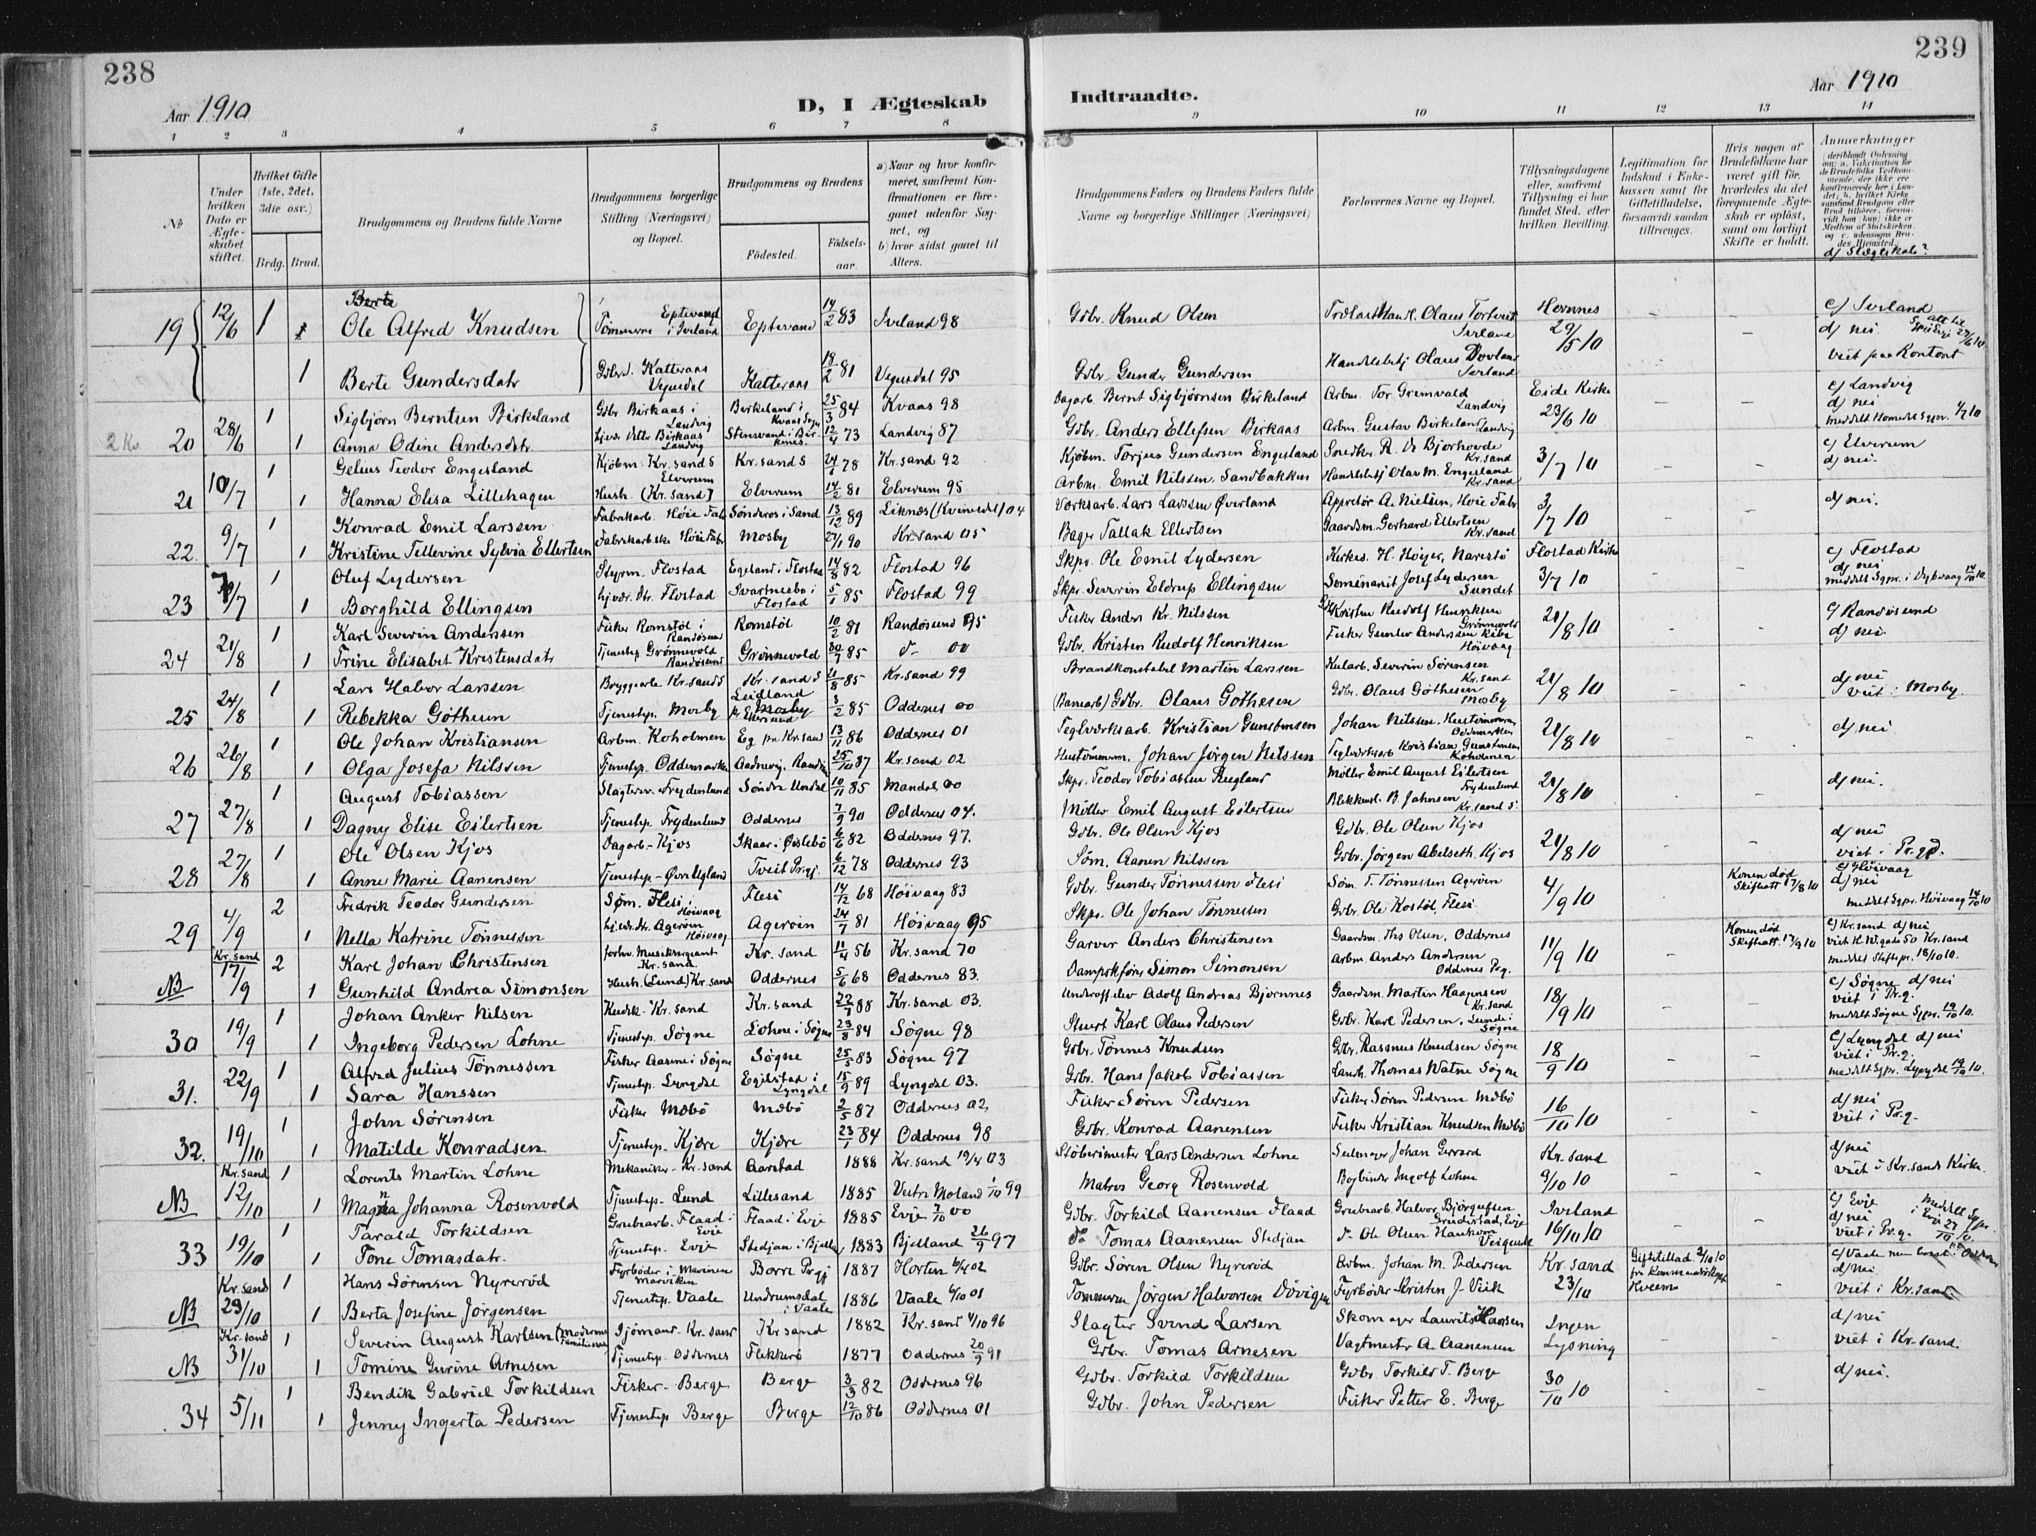 238
Aar 1910
D, I Ægteskab
1 2 3 4 5 6 7 8
No
Under hvilken Dato er Ægteskabet stiftet.
Hvilket Gifte (1ste, 2det, 3die osv.)
Brdg. Brud.
Brudgommens og Brudens fulde Navne
Brudgommens borgerlige Stilling (Næringsvei) og Bopæl.
Brudgommens og Brudens
Födested. Födselsaar.
a) Naar og hvor konfirmeret, samfremt Konfirmationen er foregaaet udenfor Sognet, og
b) hvor sidst gaaet til Alters.
19 12/6 1 Ole Alfred Knudsen Tømmerm. Eptevand i Ivland Eptevand 14/2 83 Ivland 98
1 Berte Gundersdatr Katteraas Vegusdal Katteraas 18/2 81 Vegusdal 95
20 28/6 1 Sigbjörn Berntsen Birkeland Gdbr Birkaas i Landvig Birkeland i Kvaas Sogn 25/3 84 Kvaas 98
1 Anna Odine Andersdtr. Birkaas Landvig 12/4 73 Landvig 87
21 10/7 1 Gelius Teodor Engesland Kjöbm. Kr.sand S Kr.sand S 24/1 78 Kr.sand 92
1 Hanna Elisa Lillehagen Elverum Hush. (Kr.sand) Elverum 14/2 81 Elverum 95
22. 9/7 1 Konrad Emil Larssen Fabrikarb. Høie Fab Sønderøs i Sand 13/12 89 Liknæs (Kvinesdal) 04
1 Kristine Tellevine Sylvia Ellertsen Høie Fabr Mosby 27/1 90 Kr.sand 05
23 1 Oluf Lydersen Styrm. Flostad Egeland i Flostad 14/8 82 Flostad 96
1 Borghild Ellingsen Flostad Svartnesbo i Flostad 5/1 85 Flostad 99
24 21/8 1 Karl Severin Anderssen Fisker Romstöl i Randösund Romstöl 10/2 81 Randösund 95
1 Trine Elisabet Kristensdatr Tjenestep. Grönnevold Randösund Grönnevold 30/7 85 d. 00
25 24/8 1 Lars Habor Larssen Bryggearb. Kr.sand S Kr.sand S 21/8 85 Kr.sand 99
1 Rebekka Götheun Tjenestep. Mosby 3/2 85 Oddernes 00
26 26/8 1 Ole Johan Kristiansen Arbm. Koholmen Eg pr Kr.sand 13/11 86 Oddernes 01
1 Olga Josefa Nilssen Tjenestep. Oddemarken 25/10 87 Kr.sand 02
27 27/8 1 August Tobiassen Slagtersv. Frydenlund Söndre Undal 10/11 85 Mandal 00
1 Dagny Elise Eilertsen Tjenestep. Frydenlund Oddernes 7/9 90 Oddernes 04.
28 27/8 1 Ole Olsen Kjos Dagarb.- Kjos Skaar i Øislebö 6/6 82 Oddernes 97.
1 Anne Marie Aanensen Tjenestep - Øvre Egland Tveit Prgj. 6/12 78 Oddernes 93
29 4/9 2 Fredrik Teodor Gundersen Søm. Flesi, Höivaag Flesi 14/12 68 Höivaag 83
1 Nella Katrine Tönnessen Ageröen Höivaag Ageröen 24/7 81 Höivaag 95
NB Kr.sand 17/9 2 Karl Johan Christensen forhv. Musiksergeant Kr.sand Kr.sand 11/4 56 Kr.sand 70
1 Gunhild Andrea Simonsen Hush. (Lund) Kr.sand Oddernes 5/6 68 Oddernes 83.
30 19/9 1 Johan Anker Nilsen Kudsk Kr.sand Kr.sand 22/7 88 Kr.sand 03.
1 Ingeborg Pedersen Lohne Tjenestep. Søgne Lohne i Søgne 23/8 84 Søgne 98
31. 22/9 1 Alfred Julius Tönnessen Fisker Aarnes i Søgne Søgne 25/5 83 Søgne 97
1 Sara Hanssen Tjenestep. Lyngdal Egilstad i Lyngdal 15/9 89 Lyngdal 03.
32. 19/10 1 John Sørensen Fisker Mæbö Mæbö 2/5 87 Oddernes 02,
1 Matilde Konradsen Tjenestep. Kjære Kjære 23/1 84 Oddernes 98
NB Kr.sand 12/10 1 Lorents Martin Lohne Mekaniker - Kr.sand Aarstad 1888 Kr.sand 19/4 03
1 Magna Johanna Rosenvold Tjenestep.- Lund Lillesand 1885 Vestre Moland 1/10 99
33 19/10 1 Tarald Torkildsen Grubearb. Flaad i Evje Flaad i Evje 1885 Evje 7/10 00
1 Tone Tomasdatr. Tjenestep. Evje Stedjan i Bjelland 1883 Bjelland 26/9 97
NB Kr.sand 29/10 1 Hans Sörensen Nyreröd Fyrböder i Marinen Marviken Borre Prgj 1887 Horten 6/4 02
1 Berta Josefine Jørgensen Tjenestep. Vaale Undrumsdal i Vaale 1886 Vaale 6/10 01
NB Kr.sand 31/10 1 Severin August Karlsen (Moderens Familienavn) Sjömand - Kr.sand Kr.sand 1882 Kr.sand 4/10 96
1 Tomine Gurine Arnesen Tjenestep. Oddernes Flekkerö 1877 Oddernes 20/9 91
34 5/11 1 Bendik Gabriel Torkildsen Fisker- Berge Berge 3/3 82 Oddernes 96
1 Jenny Ingerta Pedersen Tjenestep Berge Berge 12/10 86 Oddernes 01
239
Indtraadte.
Aar 1910
9 10 11 12 13 14
Brudgommens Faders og Brudens Faders fulde Navne og borgerlige Stillinger (Næringsvei)
Forlovernes Navne og Bopæl.
Tillysningsdagene eller, samfremt Tillysning ei har fundet Sted, efter hvilken Bevilling.
Legitimation for Indskud i Enkekassen samt for Giftetilladelse, forsaavidt saadan tiltrænges.
Hvis nogen af Brudefolkene har været gift för, hvorledes da det foregaaende Ægteskab er oplöst, samt om lovligt Skifte er holdt.
Anmerkninger
d) Slægtskab?
Gdbr. Knud Olsen Olaus Tortveit Ivland Hornnes 29/5 10 c) Ivland d) nei.
Gdbr Gunder Gundersen Handelsbtj Olaus Dovland Ivland viet paa Kontoret
Dagarb. Bernt Sigbjørnsen Birkeland Arbm. Tor Gremvald Landvig Eide Kirke 23/6 10 c) Landvig d) nei
Gdbr. Anders Ellefsen Birkaas Arbm Gustav Birkeland Landvig
Kjöbm. Torjus Gundersen Engesland Snedker R. Bjorhovde Kr.sand 3/7 10 c) Elverum d) nei.
Arbm. Emil Nilssen, Sandbakken Handelsbtj Olav M. Engesland Kr.sand
Værksarb. Lars Larssen Øverland Appretör A. Nielsen, Høie Fabr 3/7 10 d) nei.
Bager Tallak Ellertsen Gaardsm. Gerhard Ellertsen Kr.sand
Skpr. Ole Emil Lydersen Kirkes. H. Höyer, Narestö Flostad Kirke 3/7 10 c) Flostad d) nei
Skpr. Severin Eldrup Ellingsen Seminarist Josef Lydersen Sundet meddelt Sgpr. i Dybvaag 14/10 10.
Fisker Anders Kr. Nilssen Kristen Rudolf Henriksen Grönnevold 21/8 10 c) Randösund d) nei.
Gdbr. Kristen Rudolf Henriksen Fisker Gunder Anderssen Ribe Höivaag
Brandkonstabel Martin Larssen Severin Sørensen Kr.sand 21/8 10 d) nei viet i Mosby.
Gdbr. Olaus Gothesen Gdbr. Olaus Göthesen Mosby
Teglværksarb. Kristian Gunstensen Johan Nilssen, Hustömmerm. Oddemarken 21/8 10 d) nei
Hustömmerm. Johan Jörgen Nilssen Teglværksarb Kristian Gunstensen Koholmen
Skpr. Teodor Tobiassen Rugland Möller Emil August Eilertsen Frydenlund 21/8 10 d) nei.
Möller Emil August Eilertsen B. Johnsen Kr.sand S.
Gdbr. Ole Olsen Kjos Gdbr. Ole Olsen Kjos 21/8 10 d) nei viet i Pr.gd.
Søm. Aanen Nilssen Gdbr. Jørgen Abelseth, Kjos
Gdbr Gunder Tønnessen Flesi Søm. T. Tønnessen Ageröen 4/9 10 Konen død Skifteatt. 17/8 10 c) Höivaag d) nei
Skpr. Ole Johan Tønnessen Gdbr. Ole Kostöl, Flesi meddelt Sgpr. Høivaag 14/10 10
Garver Anders Christensen Gaardm. Ths Olsen, Oddernes 11/9 10 Konen död Skifteatt. 17/9 10 c) Kr.sand d) nei
Dampskfører Simon Simonsen Arbm Anders Andersen Oddernes Pog.
Underoff.elev Adolf Andreas Bjornnes Gaardsm. Martin Haagensen Kr.sand 18/9 10 c) Søgne d) nei viet i Pr.g.
Stuert Karl Olaus Pedersen Gdbr. Karl Pedersen, Lunde i Søgne meddelt Søgne Sgpr. 19/10 10.
Gdbr. Tönnes Knudsen Gdbr. Rasmus Knudsen Søgne 18/9 10 c) Lyngdal d) nei viet i Pr.g.
Gdbr. Hans Jakob Tobiassen Landh. Thomas Watne Søgne meddelt Sgpr. Lyngdal 19/10 10.
Fisker Søren Pedersen Fisker Søren Pedersen Mæbö 16/10 10 d) nei viet i Pr.g.
Gdbr. Konrad Aanensen Fisker Kristian Knudsen Mæbö
Stöberimester Lars Andersen Lohne Seilmager Johan Gerrard Kr.sand d) nei
Matros Georg Rosenvold Bogbinder Ingolf Lohne 9/10 10 viet i Kr.sands Kirke.
Gdbr. Torkild Aanensen Flaad Grubearb Halvor Björgufsen Evje Ivsland 16/10 10 c) Evje d) nei viet i Pr.g.
do Tomas Aanensen Stedjan d. Ole Olsen
Gdbr. Sören Olsen Nyreröd Arbm. Johan M. Pedersen Kr.sand 23/10 Giftetillad 2/10 10 c) Vaale d) nei
Tømmerm Jörgen Halvorsen Dövigen Fyrböder Kristen J. Viik viet i Kr.sand
Slagter Svend Larsen Skomager Laurits Hansen Ingen Lysning d) nei
Gdbr. Tomas Arnesen Vagtmestr A. Aanensen viet i Kr.sand.
Gdbr. Torkild Torkildsen Gdbr. Torkild T. Berge 30/10 10 d) nei.
Gdbr. John Pedersen Fisker Petter E. Berge